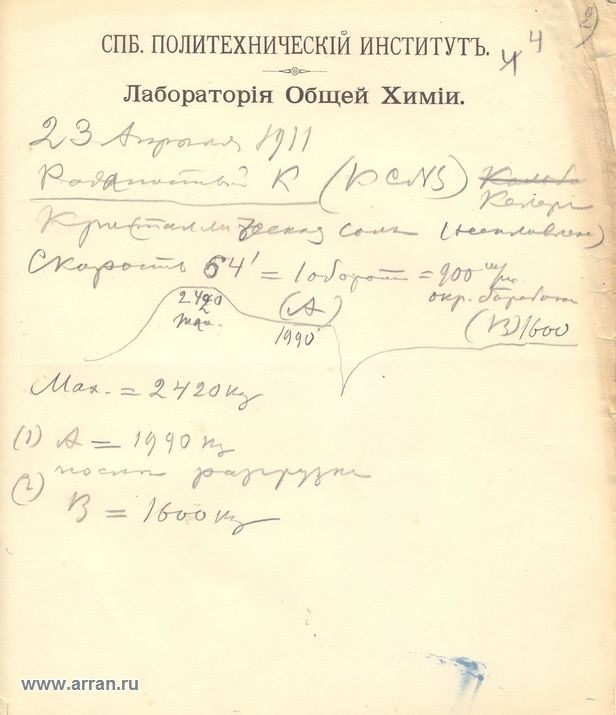 СПБ. ПОЛИТЕХНИЧЕСКІЙ ИНСТИТУТЪ. 4
Лабораторія Общей Химіи.
23 Апреля 1911
Роданистый К (KCNS)
Кристаллическая соль
Скорость 64' = 1 оборот = 900
окр. барабана
2420
max.
(A)
1990
(B) 1600
Max. = 2420 кг
(1) A = 1990 кг
после разгрузки
(2)
B = 1600 кг
www.arran.ru